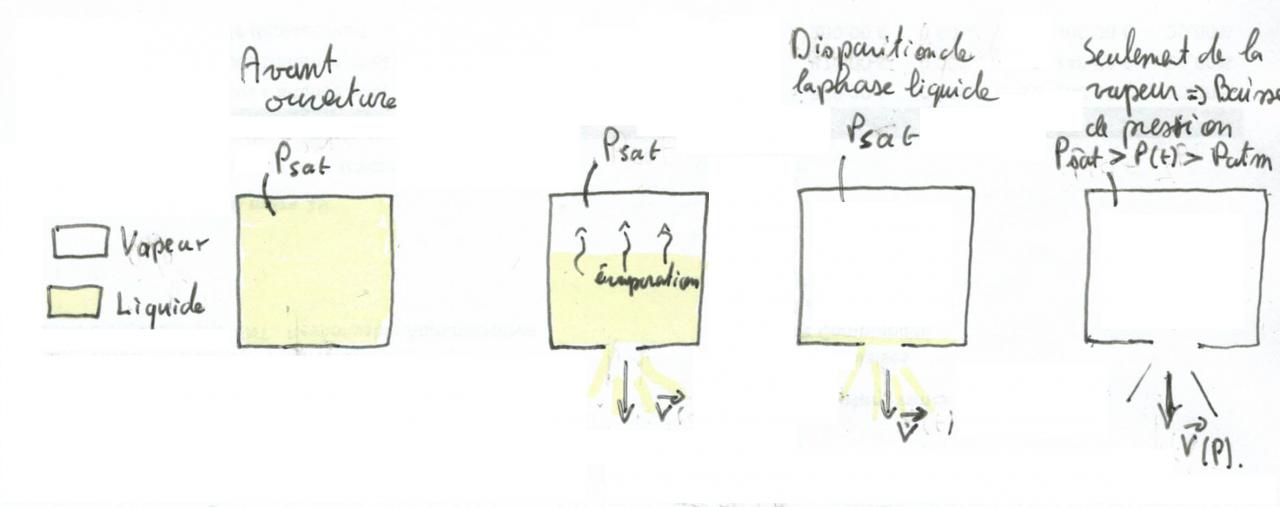 Avant
ouverture
Psat
Vapeur
Liquide
Psat
évaporation
V
Disparition de
la phase liquide
Psat
V
Seulement de la
vapeur => Baisse
de pression
Psat > P(t) > Patm
V(P).